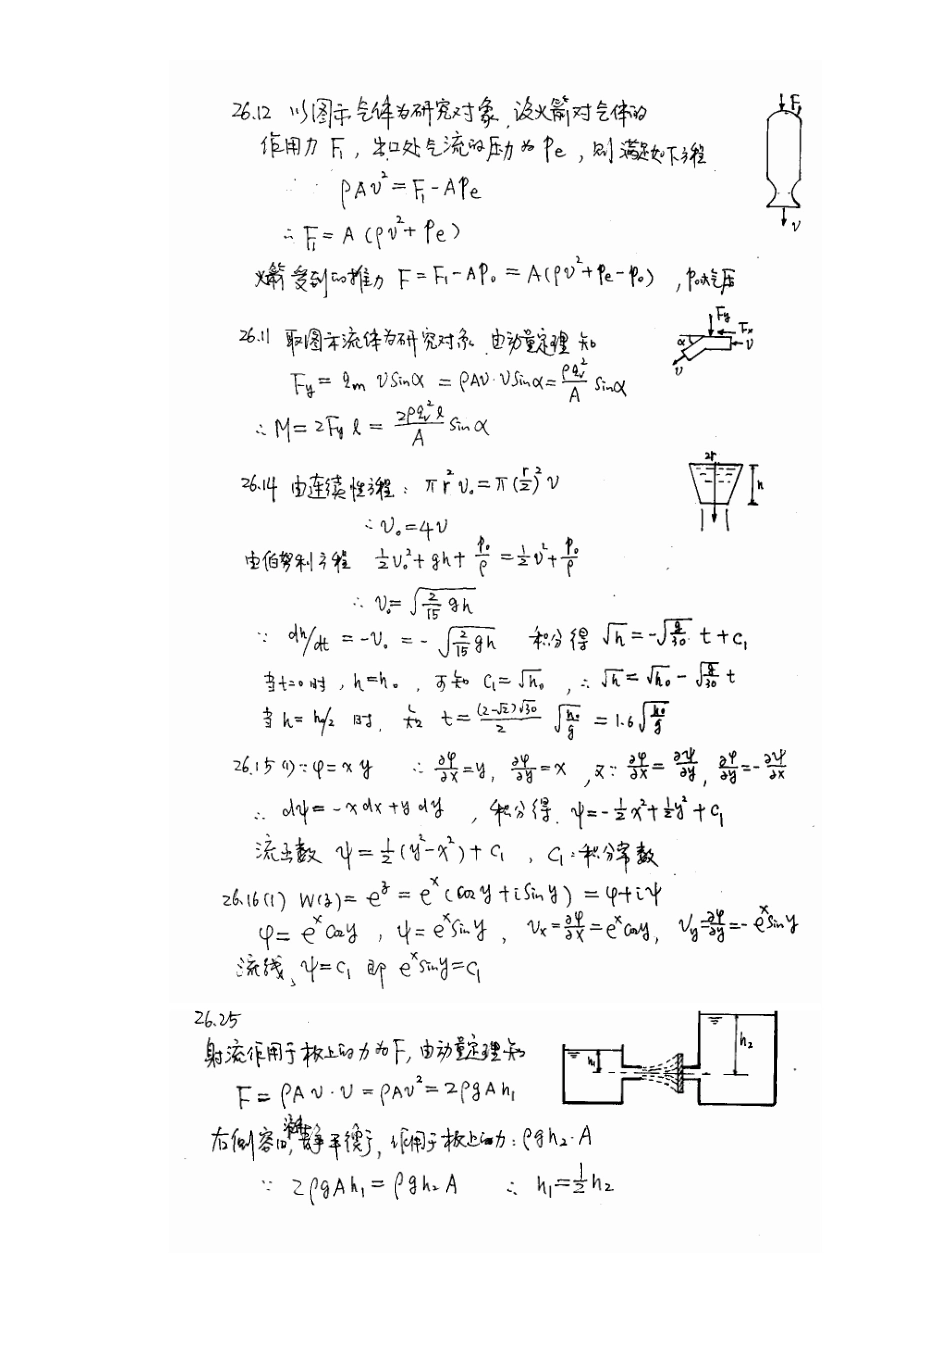 26.12 以图示气体为研究对象,设火箭对气体的
作用力F₁,出口处气流的压力为Pe,则满足如下方程
ρAv²=F₁-APe
∴F₁=A(ρv²+Pe)
火箭受到的推力 F=F₁-AP₀=A(ρv²+Pe-P₀),P₀大气压
F
v
26.11 取图示流体为研究对象 由动量定理知
Fy=qm vSinα=ρAv·vSinα=ρqv²/A Sinα
∴M=2Fyl=2ρqv²l/A Sinα
Fy
Fx
α
v
v
26.14 由连续性方程:πr²v₀=π(r/2)²v
∴v₀=4v
由伯努利方程 ½v₀²+gh+P₀/ρ=½v²+P₀/ρ
∴v₀=√(2/15 gh)
∵dh/dt=-v₀=-√(2/15 gh) 积分得 √h=-√(g/30) t+C₁
当t=0时,h=h₀,可知C₁=√h₀,∴√h=√h₀-√(g/30) t
当h=h₀/2时,知 t=(2-√2)√30/2 √(h₀/g)=1.6√(h₀/g)
2r
h
26.15(1)∵φ=xy ∴∂φ/∂x=y,∂φ/∂y=x,又∵∂φ/∂x=∂ψ/∂y,∂φ/∂y=-∂ψ/∂x
∴dψ=-xdx+ydy,积分得 ψ=-½x²+½y²+C₁
流函数 ψ=½(y²-x²)+C₁,C₁:积分常数
26.16(1) W(z)=e^z=e^x(cosy+iSiny)=φ+iψ
φ=e^x cosy,ψ=e^x Siny,Vx=∂φ/∂x=e^x cosy,Vy=∂φ/∂y=-e^x Siny
流线、ψ=C₁ 即 e^x Siny=C₁
26.25
射流作用于板上的力为F,由动量定理知
F=ρAv·v=ρAv²=2ρgAh₁
右侧容器,静平衡,作用于板上的力:ρgh₂·A
∵2ρgAh₁=ρgh₂A ∴h₁=½h₂
h₁
h₂